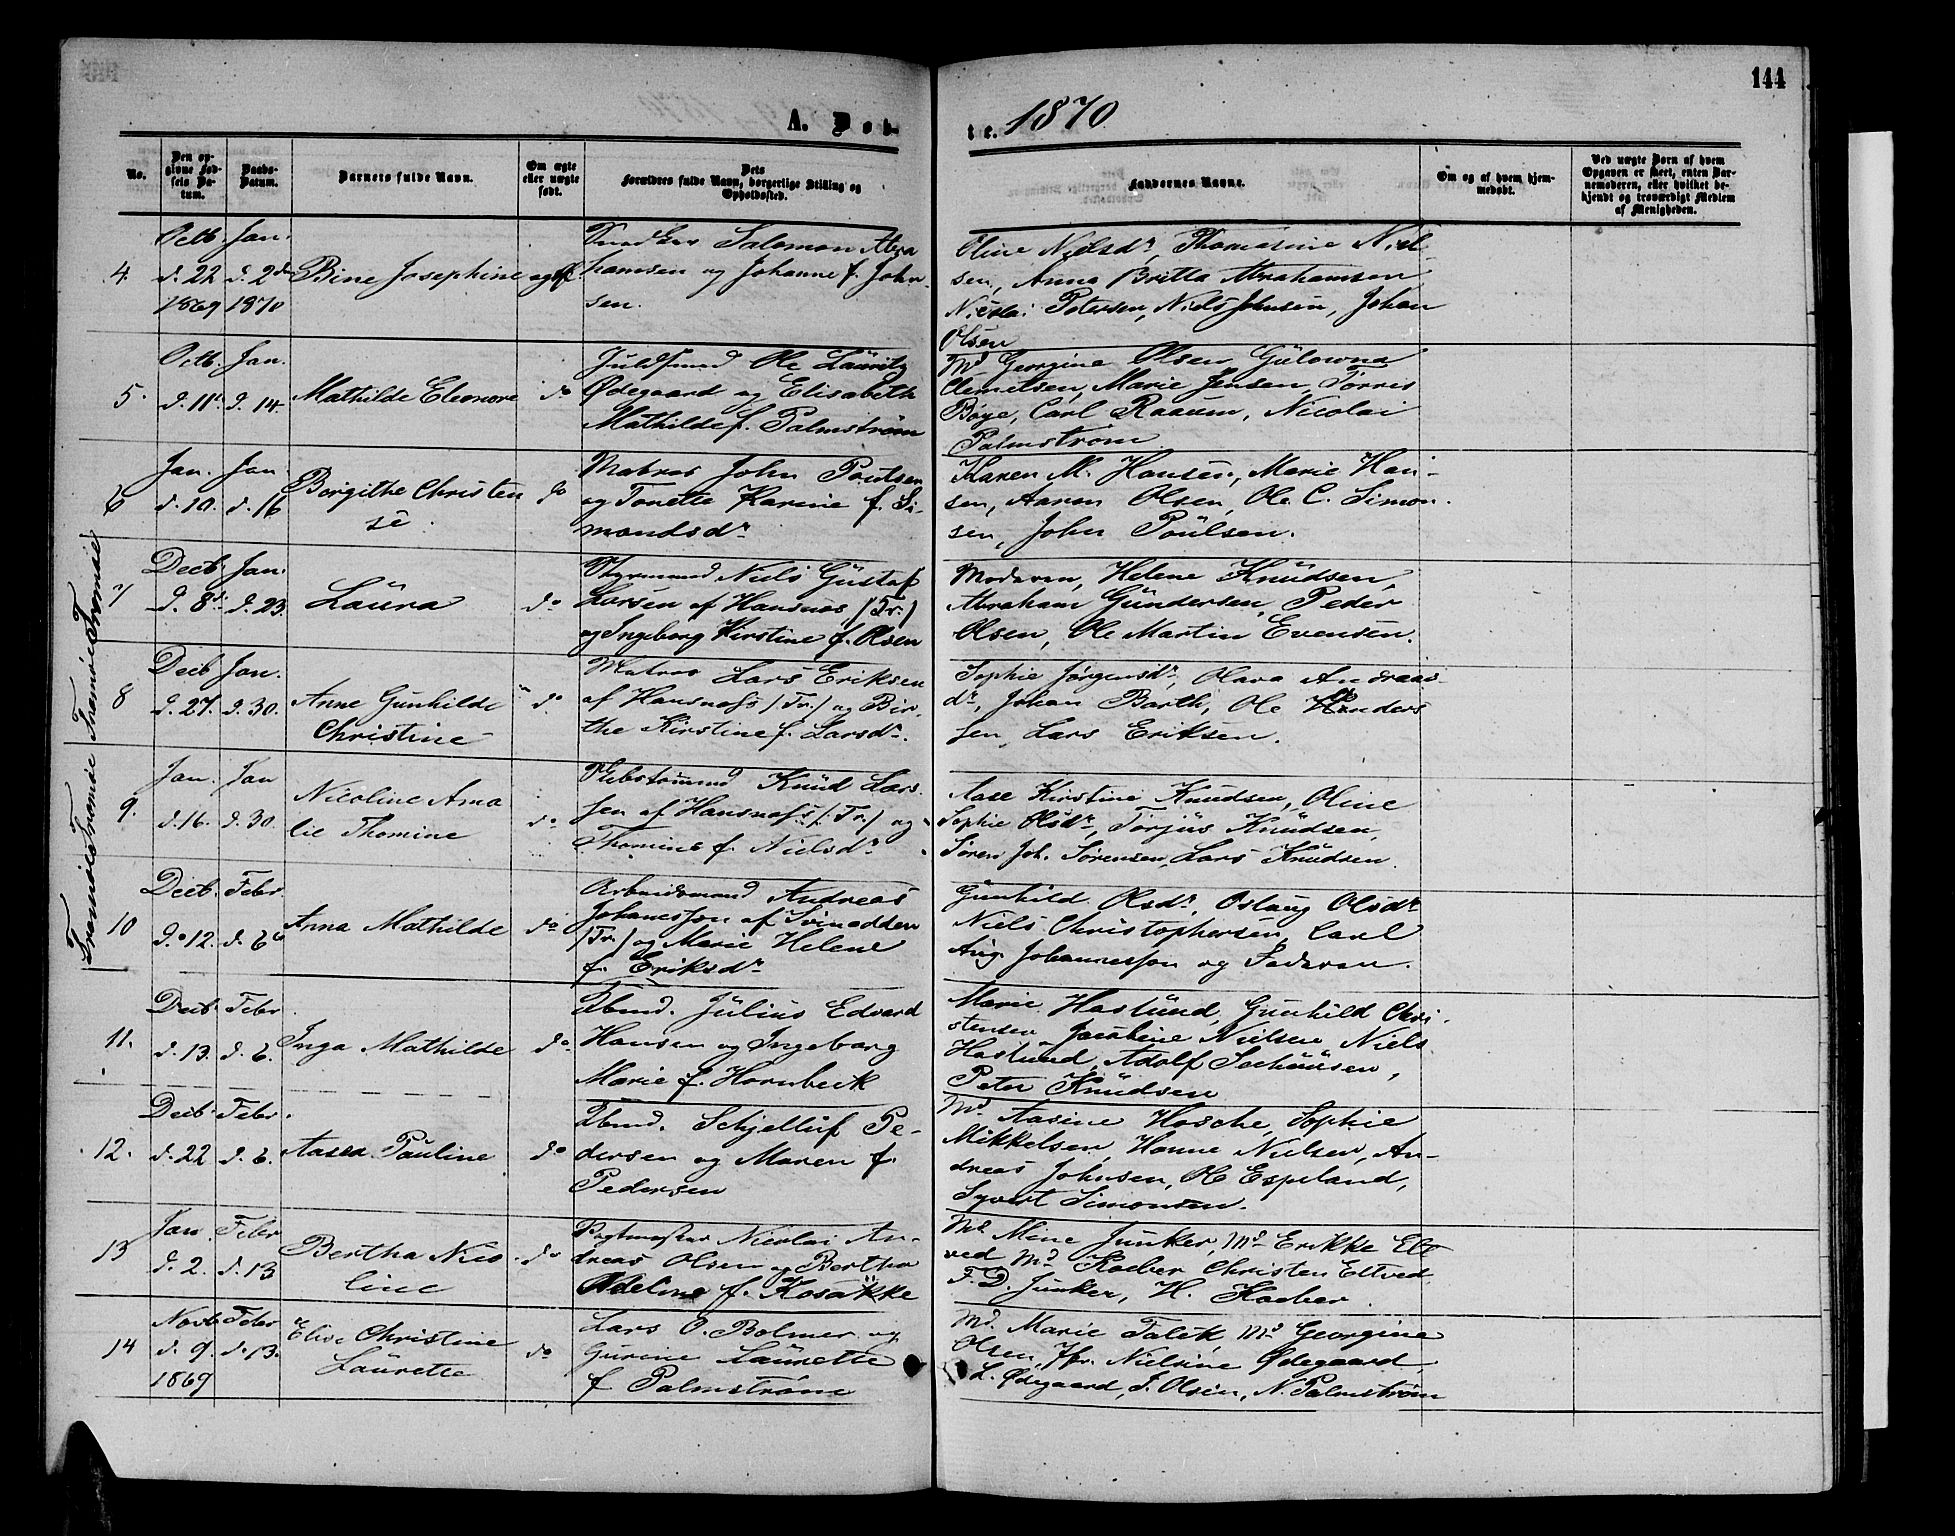 144
A. Døb-
te. 1870
No.
Den op-
givne Fød-
sels Da-
tum.
Daabs-
Datum.
Barnets fulde Navn.
Om ægte
eller uægte
født.
Dets
Forældres fulde Navn, borgerlige Stilling og
Opholdssted.
Faddernes Navne.
Om og af hvem hjem-
medøbt.
Ved uægte Børn af hvem
Opgaven er skeet, enten Bar-
nemoderen, eller hvilket be-
kjendt og troværdigt Medlem
af Menigheden.
4
Octb. d. 22 1869
Jan. d. 2den 1870
Bine Josephine
ægtef.
Snedker Salomon Abra
hamsen og Johanne f. John-
sen.
Oline Nielsdr, Thomasine Niel-
sen, Anna Britta Abrahamsen
Nicolai Petersen, Niels Johnsen, Johan
Olsen
5.
Octb. d. 11t.
Jan. d. 14.
Mathilde Eleonore
do
Fuldmd Ole Lauritz
Ødegaard og Elisabeth
Mathilde f. Palmstrøm
Md Georgine Olsen, Gulowna
Clemetsen, Marie Jensen, Torres
Bøye, Carl Raaum, Nicolai
Palmstrøm
6
Jan. d. 10.
Jan. d. 16
Borgithe Christen
se.
do
Matros John Poulsen
og Tonette Karine f. Si-
mondsdr.
Karen M. Hansen, Marie Han-
sen, Aaron Olsen, Ole C. Simon-
sen, John Poulsen.
7
Decb. d. 8d.
Jan. d. 23.
Laura
do
Styrmand Niels Gustaf
Larsen af Hansnæs (Tr.)
og Ingeborg Kirstine f. Olsen
Moderen, Helene Knudsen,
Abraham Gundersen, Peder
Olsen, Ole Martin Evensen.
8
Decb d. 27.
Jan. d. 30.
Anne Gunhilde
Christine
do
Matros Lars Eriksen
af Hansnæs (Tr.) og Bir-
the Kirstine f. Larsdr.
Sophie Jørgensdr, Olava Andreas-
dr, Johan Barth, Ole
sen, Lars Eriksen.
9.
Jan. d. 16.
Jan d. 30.
Nicoline Ama
lie Thomine
do
Skibstømmd Knud Lars-
sen af Hansnæs (Tr.) og
Thomine f. Nielsdr.
Aase Kirstine Knudsen, Oline
Sophie Olsdr, Torjus Knudsen,
Søren Joh. Sørensen, Lars Knudsen.
10
Decb. d. 12.
Febr d. 6
Anna Mathilde
do
Arbeidsmand Andreas
Johannessen af Svinodden
(Tr.) og Marie Helene
f. Eriksdr
Gunhild Olsdr, Oslaug Olsdr
Niels Christophersen, Carl
Aug. Johannessen og Faderen.
Tromøie Tromøie Tromøie Tromøie
11.
Decb. d. 13.
Febr d. 6.
Inga Mathilde
do
Tbmd. Julius Edvard
Hansen og Ingeborg
Marie f. Hornbeck
Marie Haslund, Gunhild Chri-
stensen, Jacobine Nielsen, Niels
Haslund, Adolf Seehuusen,
Peter Knudsen
12.
Decb. d. 22
Febr. d. 6.
Aasea Pauline
do
Tbmd. Schjelluf Pe-
dersen og Maren f.
Pedersen
Md. Aasine Hasche, Sophie
Mikkelsen, Hanne Nielsen, An-
dreas Johnsen, Ole Espeland,
Syvert Simonsen.
13
Jan. d. 2.
Febr d. 13
Bertha Nico
line
do
Postmester Nicolai An-
dreas Olsen og Bertha
Adeline f. Kosakke
Md Mine Junker, Md Erikke Elt
ved, Md Kaeber, Christen Eltved,
F. D. Junker, H. Kaeber.
14
Novb. d. 9. 1869
Febr d. 13.
Elise Christine
Laurette
do
Lars O. Bolmer og
Gurine Laurette
f Palmstrøm
Md. Marie Falck, Md Georgine
Olsen, Jfr. Nielsine Ødegaard,
L. Ødegaard, J. Olsen, N. Palmstrøm